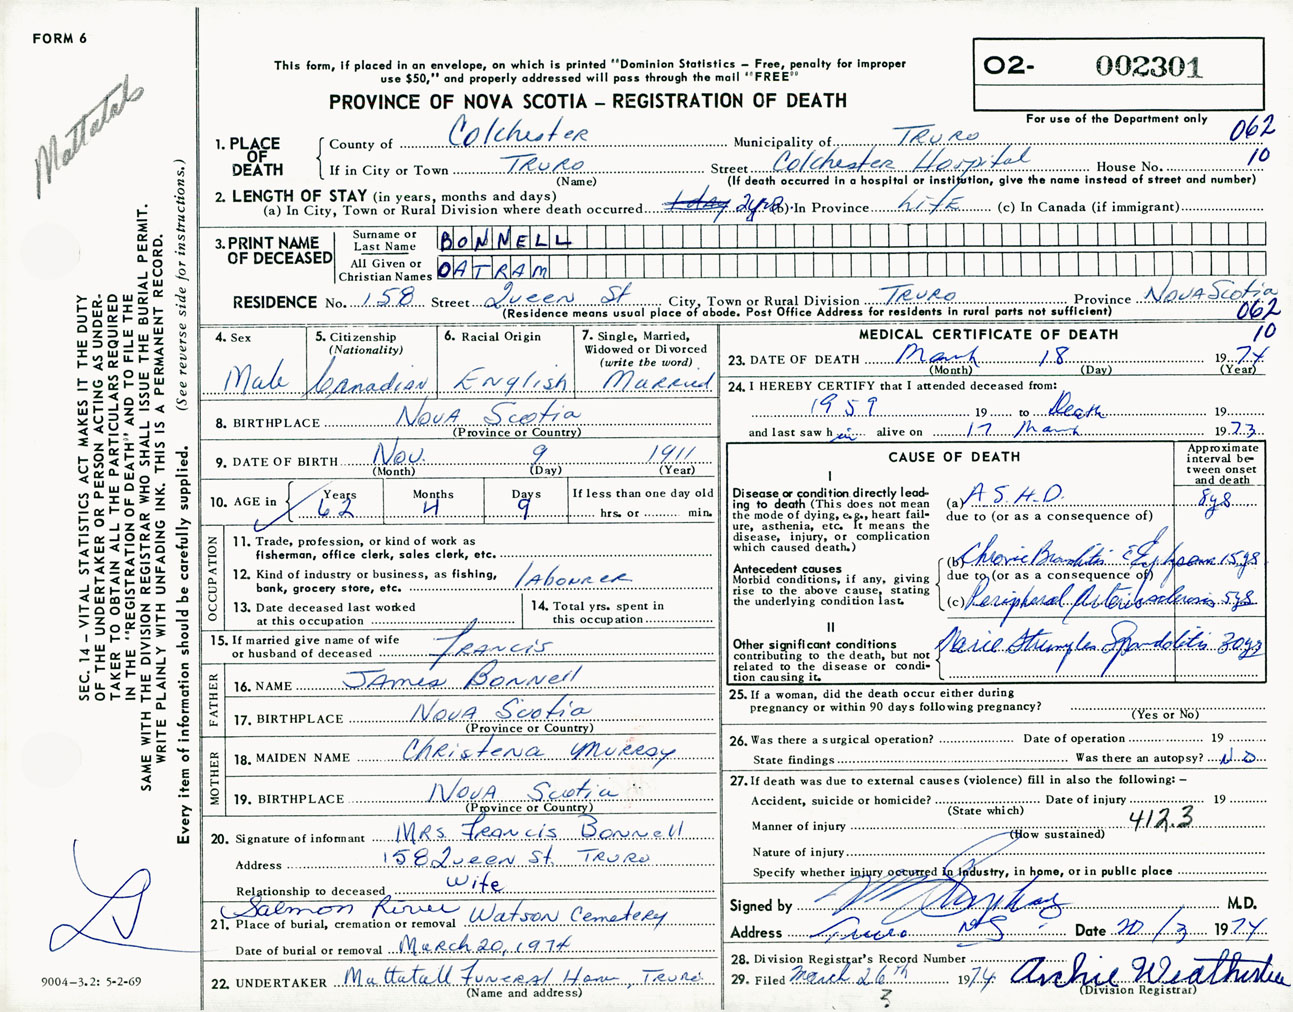 FORM 6
Mattatals
This form, if placed in an envelope, on which is printed "Dominion Statistics – Free, penalty for improper
use $50," and properly addressed will pass through the mail "FREE"
PROVINCE OF NOVA SCOTIA – REGISTRATION OF DEATH
O2- 002301
For use of the Department only
062
10
1. PLACE OF DEATH
County of Colchester Municipality of Truro
If in City or Town Truro Street Colchester Hospital House No.
(Name) (If death occurred in a hospital or institution, give the name instead of street and number)
2. LENGTH OF STAY (in years, months and days)
(a) In City, Town or Rural Division where death occurred 1 day 2 yrs (b) In Province Life (c) In Canada (if immigrant)
3. PRINT NAME OF DECEASED
Surname or Last Name BONNELL
All Given or Christian Names OATRAM
RESIDENCE No. 158 Street Queen St City, Town or Rural Division Truro Province Nova Scotia
(Residence means usual place of abode. Post Office Address for residents in rural parts not sufficient)
062
10
4. Sex Male
5. Citizenship (Nationality) Canadian
6. Racial Origin English
7. Single, Married, Widowed or Divorced (write the word) Married
8. BIRTHPLACE Nova Scotia
(Province or Country)
9. DATE OF BIRTH Nov. 9 1911
(Month) (Day) (Year)
10. AGE in Years 62 Months 4 Days 9 If less than one day old hrs. or min.
OCCUPATION
11. Trade, profession, or kind of work as fisherman, office clerk, sales clerk, etc.
12. Kind of industry or business, as fishing, bank, grocery store, etc. labourer
13. Date deceased last worked at this occupation
14. Total yrs. spent in this occupation
15. If married give name of wife or husband of deceased Francis
FATHER
16. NAME James Bonnell
17. BIRTHPLACE Nova Scotia
(Province or Country)
MOTHER
18. MAIDEN NAME Christena Murray
19. BIRTHPLACE Nova Scotia
(Province or Country)
20. Signature of informant Mrs Francis Bonnell
Address 158 Queen St. Truro
Relationship to deceased Wife
Salmon River
21. Place of burial, cremation or removal Watson Cemetery
Date of burial or removal March 20, 1974
22. UNDERTAKER Mattatall Funeral Home, Truro
(Name and address)
MEDICAL CERTIFICATE OF DEATH
23. DATE OF DEATH March 18 1974
(Month) (Day) (Year)
24. I HEREBY CERTIFY that I attended deceased from:
1959 19 to Death 19
and last saw him alive on 17 March 1973
CAUSE OF DEATH
Approximate interval between onset and death
I
Disease or condition directly leading to death (This does not mean the mode of dying, e.g., heart failure, asthenia, etc. It means the disease, injury, or complication which caused death.)
(a) A.S.H.D. 8 ys
due to (or as a consequence of)
Antecedent causes
Morbid conditions, if any, giving rise to the above cause, stating the underlying condition last.
(b) Chronic Bronchitis c Emphysema 15 ys
due to (or as a consequence of)
(c) Peripheral Arteriosclerosis 5 ys
II
Other significant conditions
contributing to the death, but not related to the disease or condition causing it.
Marie Strumples Spondolitis 30 ys
25. If a woman, did the death occur either during
pregnancy or within 90 days following pregnancy?
(Yes or No)
26. Was there a surgical operation? Date of operation 19
State findings Was there an autopsy? No
27. If death was due to external causes (violence) fill in also the following: –
Accident, suicide or homicide? Date of injury 19
(State which)
Manner of injury 412.3
(How sustained)
Nature of injury
Specify whether injury occurred in Industry, in home, or in public place
Signed by M.D.
Address Truro NS. Date 20/3 1974
28. Division Registrar's Record Number
29. Filed March 26th 1974 Archie Weatherbee
(Division Registrar)
3
SEC. 14 – VITAL STATISTICS ACT MAKES IT THE DUTY
OF THE UNDERTAKER OR PERSON ACTING AS UNDER-
TAKER TO OBTAIN ALL THE PARTICULARS REQUIRED
IN THE "REGISTRATION OF DEATH" AND TO FILE THE
SAME WITH THE DIVISION REGISTRAR WHO SHALL ISSUE THE BURIAL PERMIT.
WRITE PLAINLY WITH UNFADING INK. THIS IS A PERMANENT RECORD.
Every item of information should be carefully supplied. (See reverse side for instructions.)
9004-3.2: 5-2-69